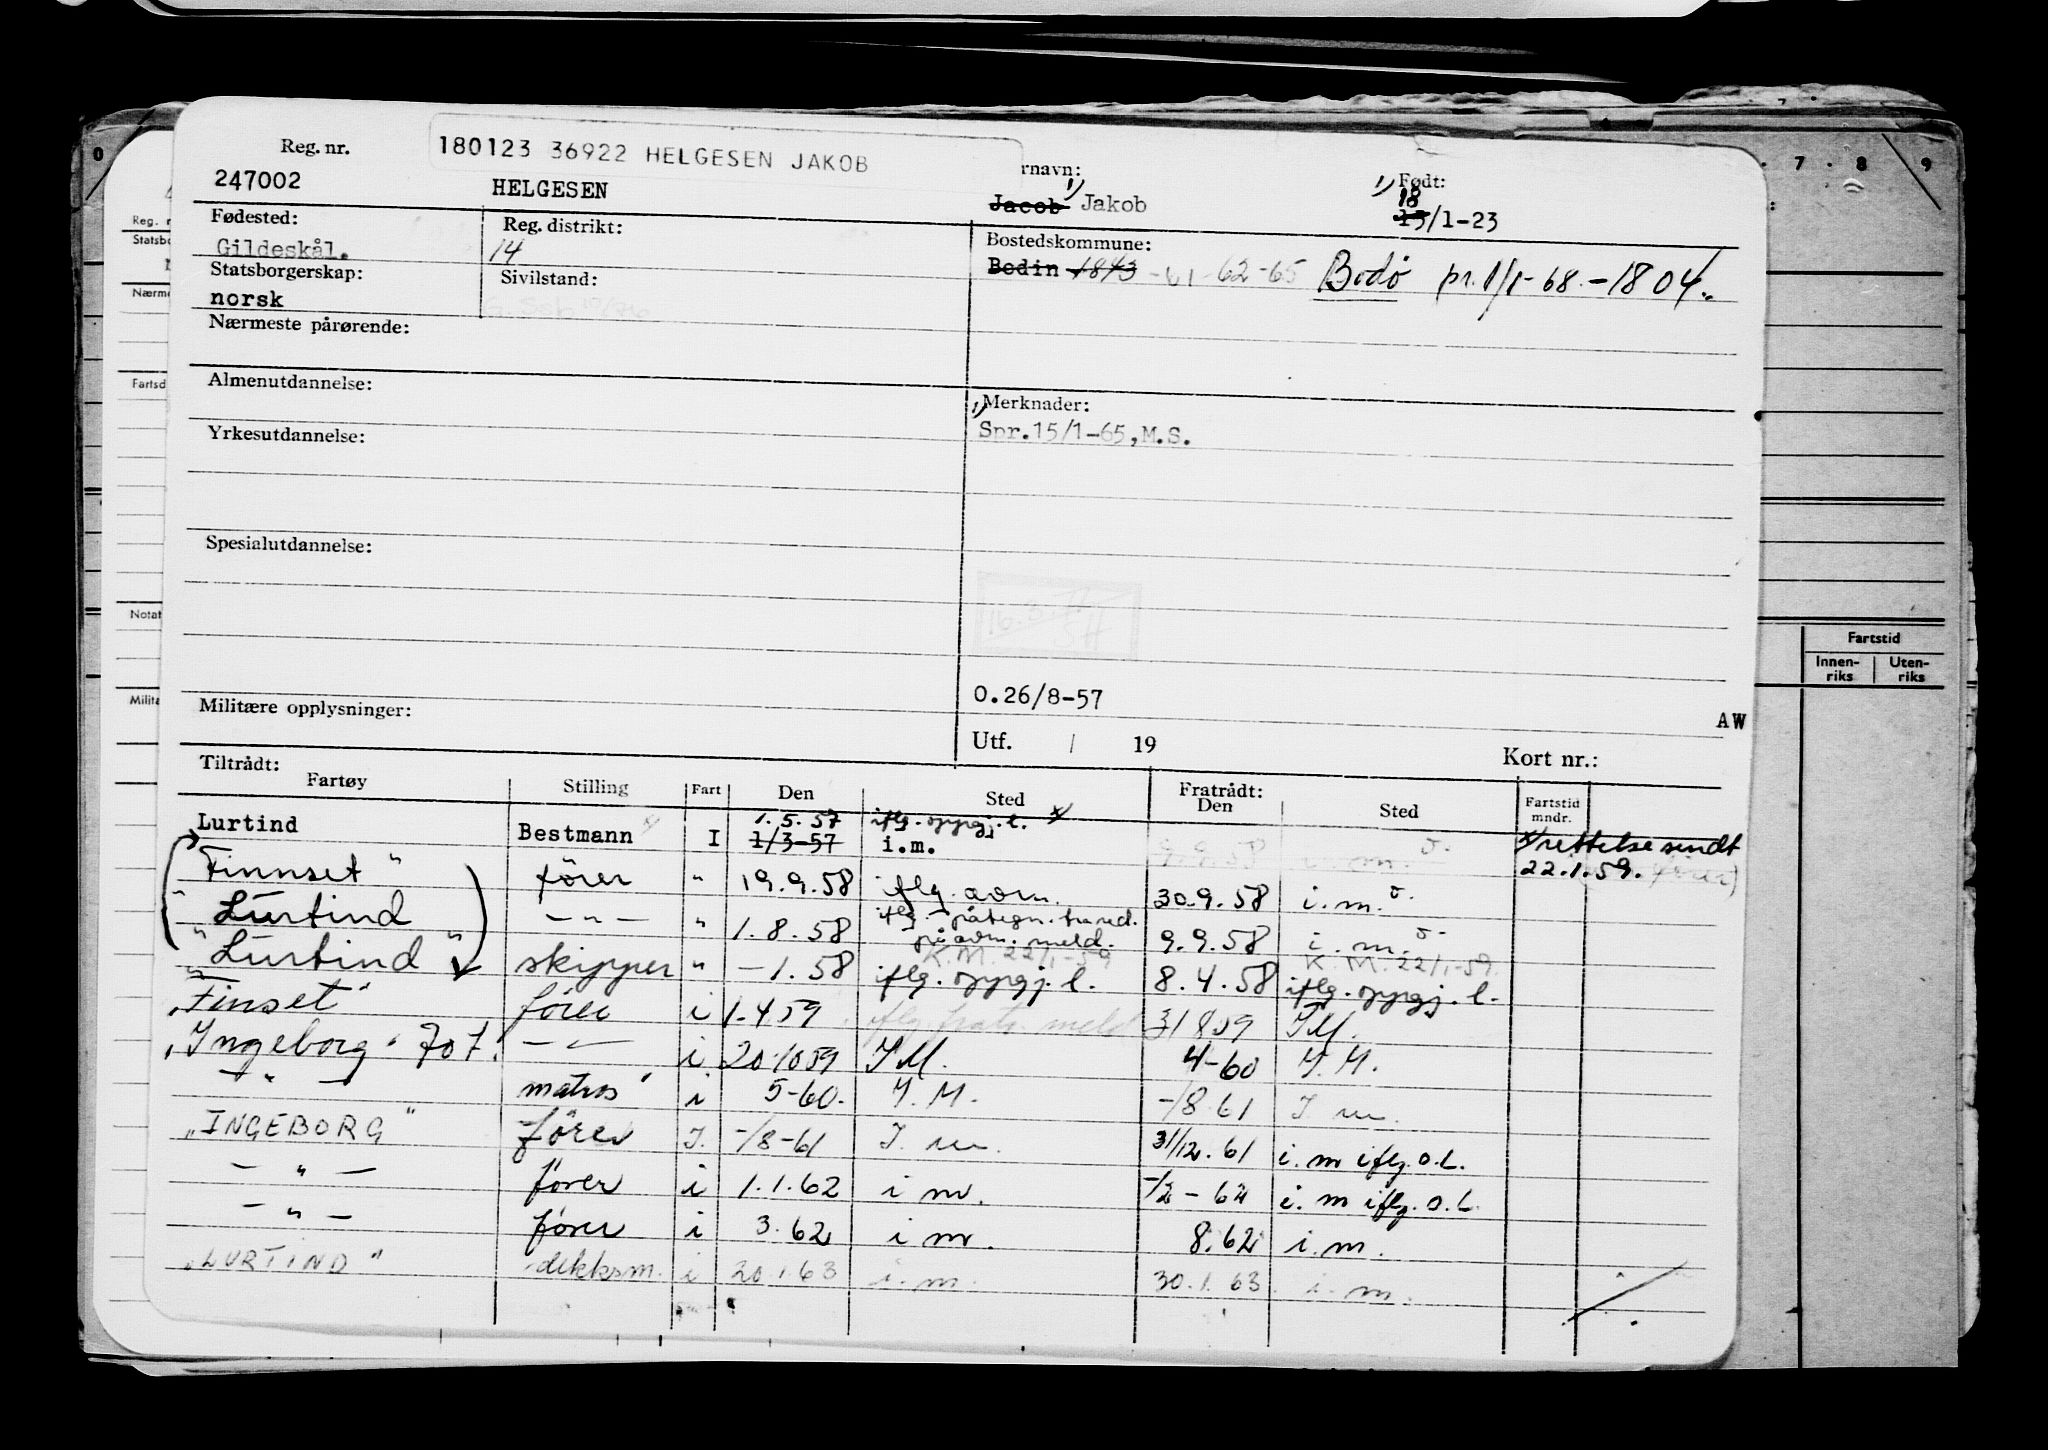 180123 36922 HELGESEN JAKOB
Reg. nr.
rnavn:
1) Født:
247002 HELGESEN Jacob 1) Jakob 18
13/1-23
Fødested: Reg. distrikt: Bostedskommune:
Gildeskål. 14 Bodin 1843 -61-62-65 Bodø pr. 1/1-68.-1804.
Statsborgerskap: Sivilstand:
norsk
Nærmeste pårørende:
Almenutdannelse:
1) Merknader:
Spr.15/1-65,M.S.
Yrkesutdannelse:
Spesialutdannelse:
O.26/8-57
Militære opplysninger: AW
Utf. / 19 Kort nr.:
Tiltrådt: Fratrådt:
Fartøy Stilling Fart Den Sted Den Sted Fartstid mndr.
Lurtind Bestmann I 1.5.57 iflg. oppgj. l. x/
1/3-57 i.m. 9.9.58 i.m. x/ rettelse sendt
22.1.59.
Finnset" fører " 19.9.58 iflg. avm. 30.9.58 i.m.
"Lurtind -"- " 1.8.58 iflg. påtegn. fra red.
på avm. meld. 9.9.58 i.m.
K.M. 22/1-59 K.M. 22/1-59
"Lurtind" skipper " -1.58 iflg. oppgj. l. 8.4.58 iflg. oppgj. l.
"Finset" fører i 1.4 59 iflg. fratr. meld 31 8 59 I M.
"Ingeborg" 707. -"- i 20.10 59 I M. 4-60 I. M.
-"- matros i 5-60. I. M. -/8 61 I m.
"INGEBORG" fører I. -/8-61 I m. 31/12.61 i.m iflg. o.l.
-"- fører i 1.1.62 i m. -/2-62 i. m iflg. o.l.
-"- fører i 3.62 i m. 8.62 i.m.
"LURTIND" dekksm. i 20.1.63 i.m. 30.1.63 i.m.
0 7 8 9
Reg. n
Statsbo
Nærme
Fartsd
Notat
Milita
Fartstid
Innen-
riks Uten-
riks